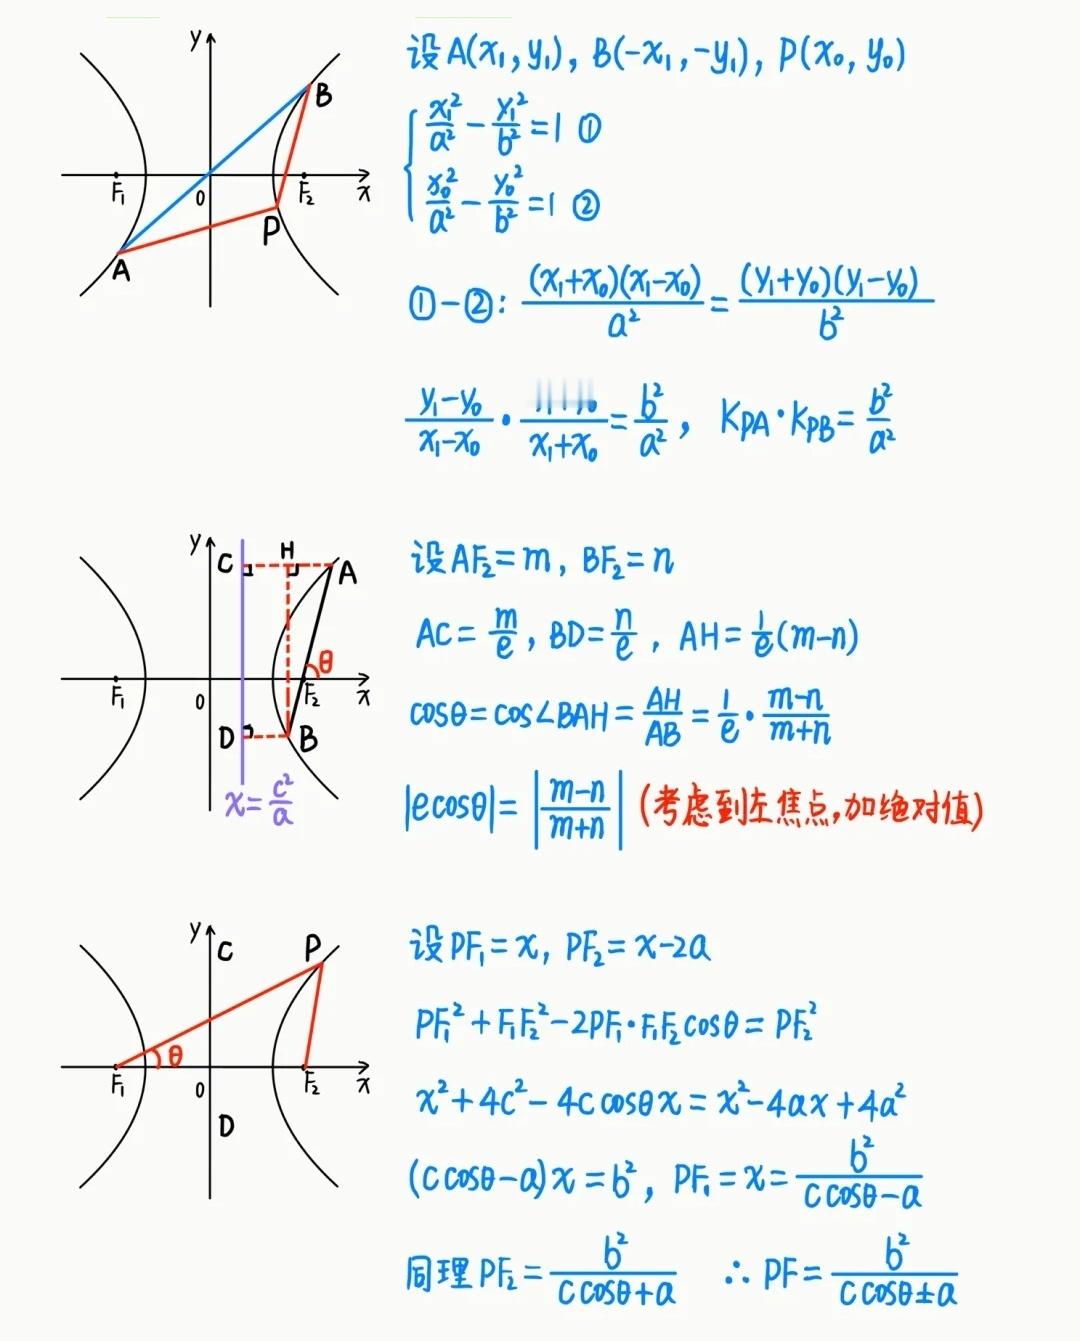 设A(x₁,y₁), B(-x₁,-y₁), P(x₀,y₀)
x₁²/a² - y₁²/b² = 1 ①
x₀²/a² - y₀²/b² = 1 ②
①-②: (x₁+x₀)(x₁-x₀)/a² = (y₁+y₀)(y₁-y₀)/b²
(y₁-y₀)/(x₁-x₀) · /(x₁+x₀) = b²/a², K_PA·K_PB = b²/a²
y
B
F₁
0
F₂
x
P
A
设AF₂=m, BF₂=n
AC=m/e, BD=n/e, AH=1/e(m-n)
cosθ=cos∠BAH=AH/AB=1/e·(m-n)/(m+n)
|ecosθ|=|(m-n)/(m+n)| (考虑到左焦点,加绝对值)
y
C
H
A
θ
F₁
0
F₂
x
D
B
x=c²/a
设PF₁=x, PF₂=x-2a
PF₁²+F₁F₂²-2PF₁·F₁F₂cosθ=PF₂²
x²+4c²-4ccosθx=x²-4ax+4a²
(ccosθ-a)x=b², PF₁=x=b²/(ccosθ-a)
同理PF₂=b²/(ccosθ+a) ∴PF=b²/(ccosθ±a)
y
C
P
θ
F₁
0
F₂
x
D